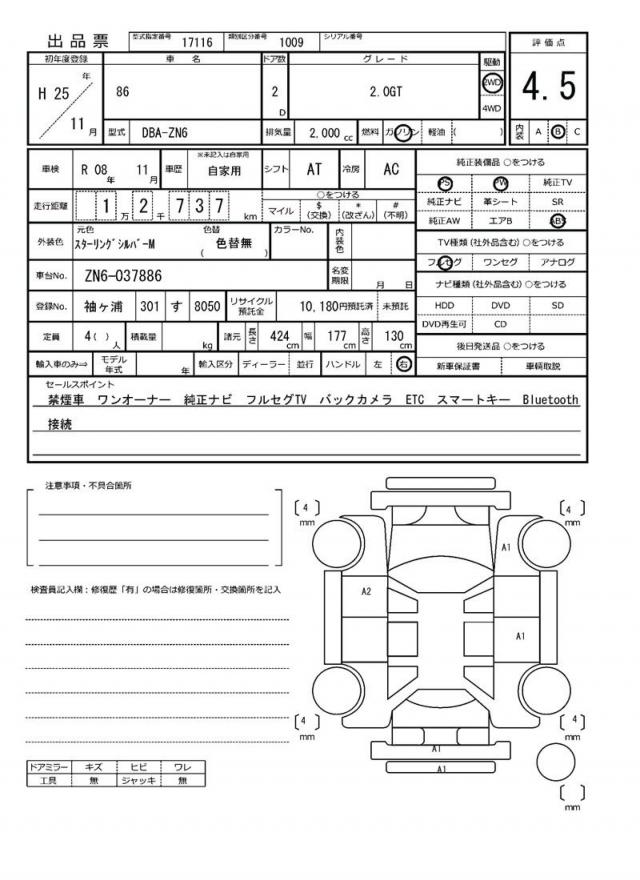 出品票 型式指定番号 17116 類別区分番号 1009 シリアル番号
評価点
4.5
内装 A B C
初年度登録 車名 ドア数 グレード 駆動
H 25 年 11 月 86 2 D 2.0GT 2WD 4WD
型式 DBA-ZN6 排気量 2,000 cc 燃料 ガソリン 軽油 ( )
車検 R 08 年 11 月 車歴 ※未記入は自家用 自家用 シフト AT 冷房 AC
走行距離 1 万 2 千 7 3 7 km ○をつける マイル $(交換) *(改ざん) #(不明)
外装色 元色 スターリングシルバーM 色替 ( 色替無 ) カラーNo. 内装色
車台No. ZN6-037886 名変期限 月 日
登録No. 袖ヶ浦 301 す 8050 リサイクル預託金 10,180円預託済 未預託
定員 4( )人 積載量 kg 諸元 長さ 424 cm 幅 177 cm 高さ 130 cm
輸入車のみ⇒ モデル年式 年 輸入区分 ディーラー 並行 ハンドル 左 右
純正装備品 ○をつける
PS PW 純正TV
純正ナビ 革シート SR
純正AW エアB ABS
TV種類(社外品含む)○をつける
フルセグ ワンセグ アナログ
ナビ種類(社外品含む)○をつける
HDD DVD SD
DVD再生可 CD
後日発送品 ○をつける
新車保証書 車輌取説
セールスポイント
禁煙車 ワンオーナー 純正ナビ フルセグTV バックカメラ ETC スマートキー Bluetooth
接続
注意事項・不具合箇所
検査員記入欄：修復歴「有」の場合は修復箇所・交換箇所を記入
ドアミラー キズ ヒビ ワレ
工具 無 ジャッキ 無
( 4 ) mm
( 4 ) mm
A1
A2
A1
( 4 ) mm
( 4 ) mm
A1
A1
( ) mm